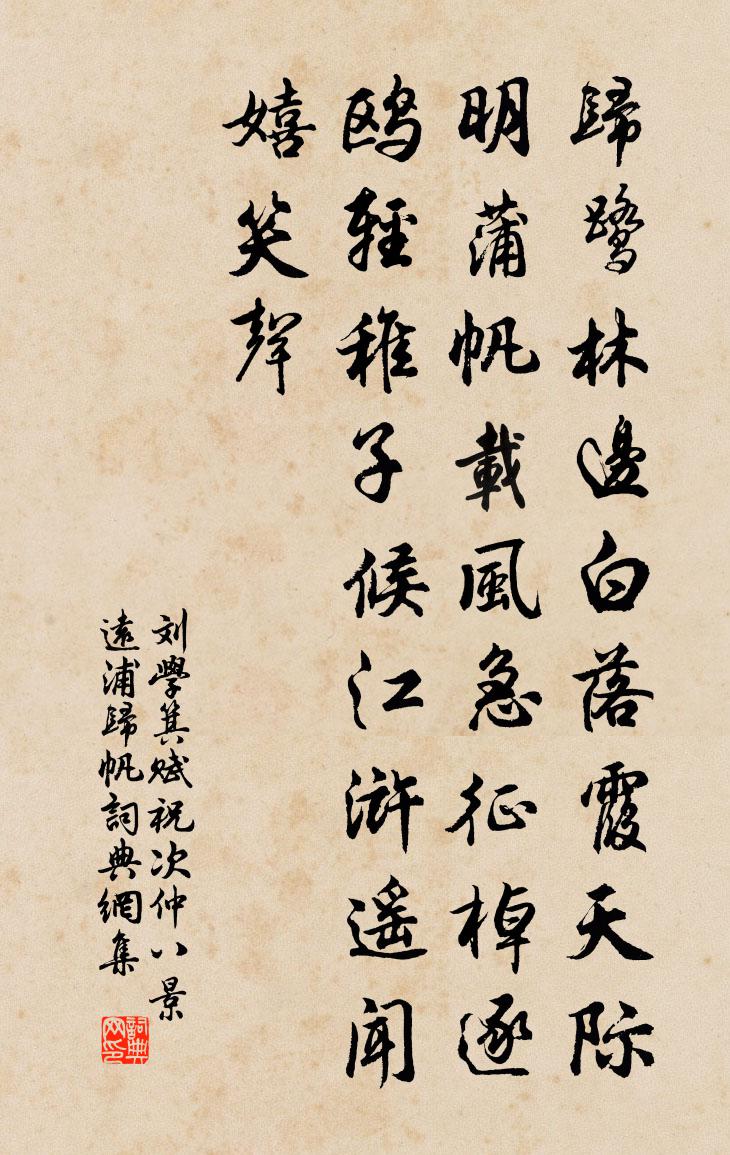 歸鹭林邊白落霞天际
明蒲帆載風急征棹逐
鸥輕稚子候江浒遥闻
嬉笑聲
刘學箕赋祝次仲八景
遠浦歸帆詞典網集
詞典网印